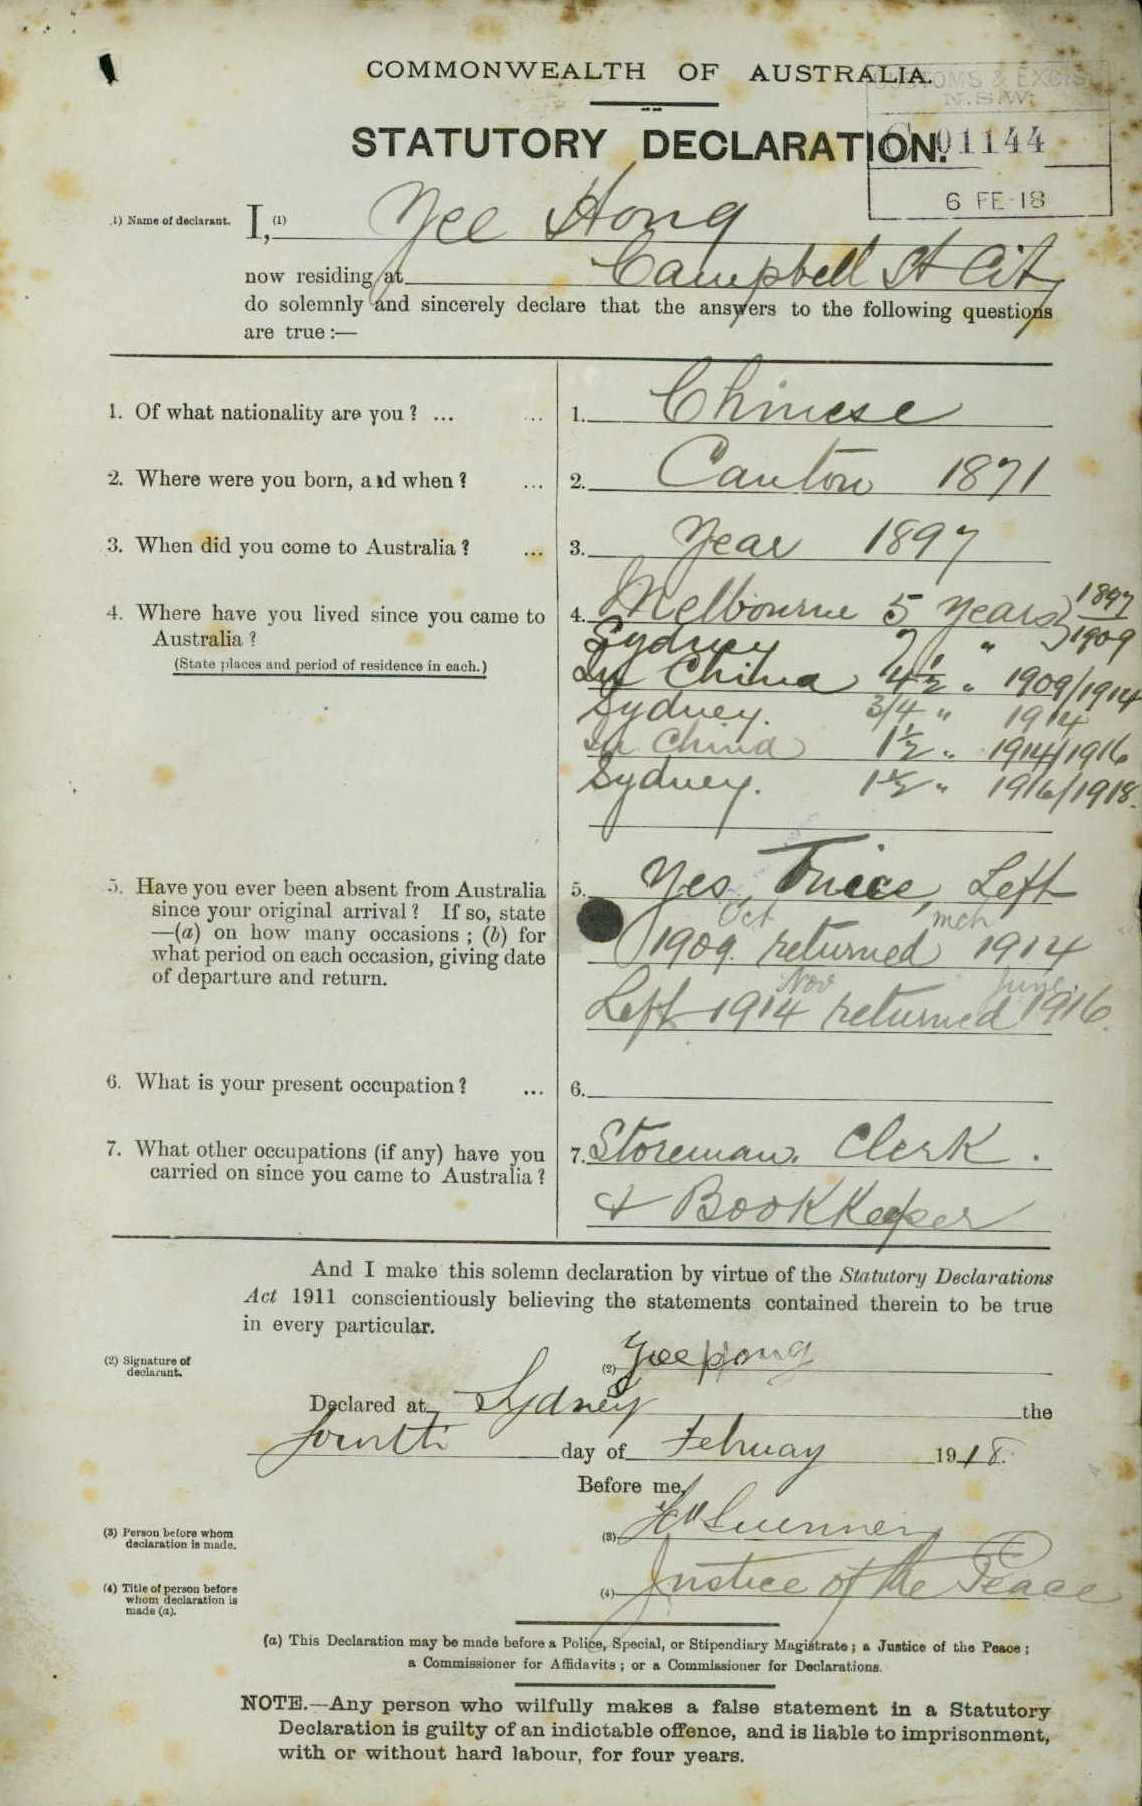 COMMONWEALTH OF AUSTRALIA.
CUSTOMS & EXCISE
N.S.W.
STATUTORY DECLARATION.
C 01144
6 FE 18
(1) Name of declarant. I, (1) Yee Hong
now residing at Campbell St City
do solemnly and sincerely declare that the answers to the following questions
are true :—
1. Of what nationality are you ? ... ... 1. Chinese
2. Where were you born, and when ? ... 2. Canton 1871
3. When did you come to Australia ? ... 3. Year 1897
4. Where have you lived since you came to 4. Melbourne 5 years 1897
Australia ? Sydney 7 " 1909
(State places and period of residence in each.) In China 4½ " 1909/1914
Sydney. 3/4 " 1914
In China 1½ " 1914/1916
Sydney. 1½ " 1916/1918.
5. Have you ever been absent from Australia 5. Yes, Twice, Left
since your original arrival ? If so, state Oct mch
—(a) on how many occasions ; (b) for 1909. returned 1914
what period on each occasion, giving date Nov June.
of departure and return. Left 1914 returned 1916.
6. What is your present occupation ? ... 6.
7. What other occupations (if any) have you 7. Storeman. Clerk.
carried on since you came to Australia ? & BookKeeper
And I make this solemn declaration by virtue of the Statutory Declarations
Act 1911 conscientiously believing the statements contained therein to be true
in every particular.
(2) Signature of declarant. (2) Yee Hong
Declared at Sydney the
fourth day of February 1918.
Before me,
(3) Person before whom declaration is made. (3)
(4) Title of person before whom declaration is made (a). (4) Justice of the Peace
(a) This Declaration may be made before a Police, Special, or Stipendiary Magistrate ; a Justice of the Peace ;
a Commissioner for Affidavits ; or a Commissioner for Declarations.
NOTE.—Any person who wilfully makes a false statement in a Statutory
Declaration is guilty of an indictable offence, and is liable to imprisonment,
with or without hard labour, for four years.